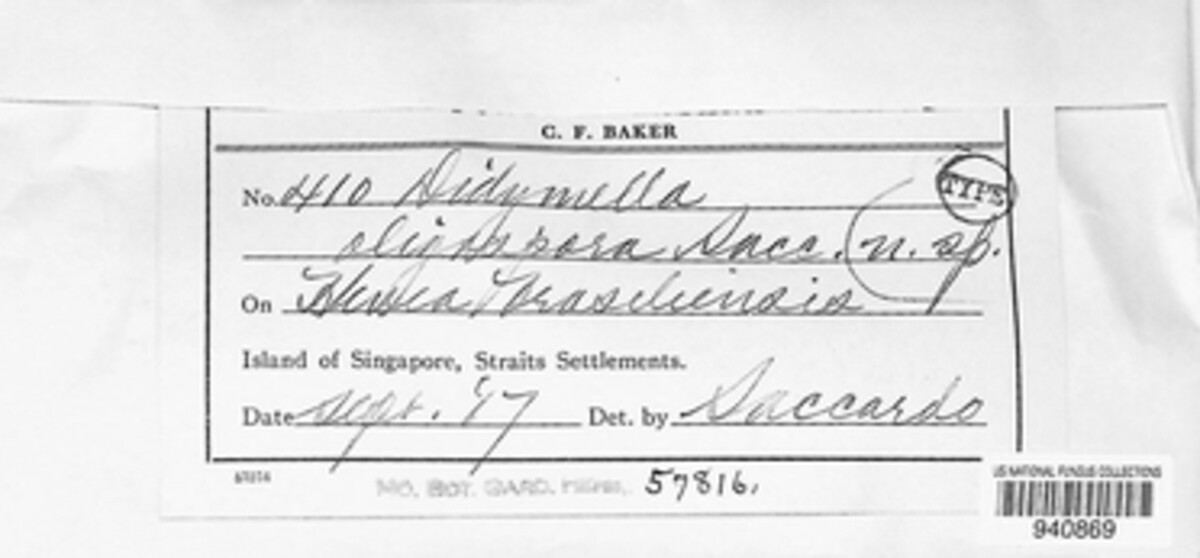 C. F. BAKER
No. 410 Didymella TYPE
oligospora Sacc. (n. sp.
On Hevea Brasiliensis
Island of Singapore, Straits Settlements.
Date Sept. '17 Det. by Saccardo
MO. BOT. GARD. HERB. 57816.
US NATIONAL FUNGUS COLLECTIONS
940869